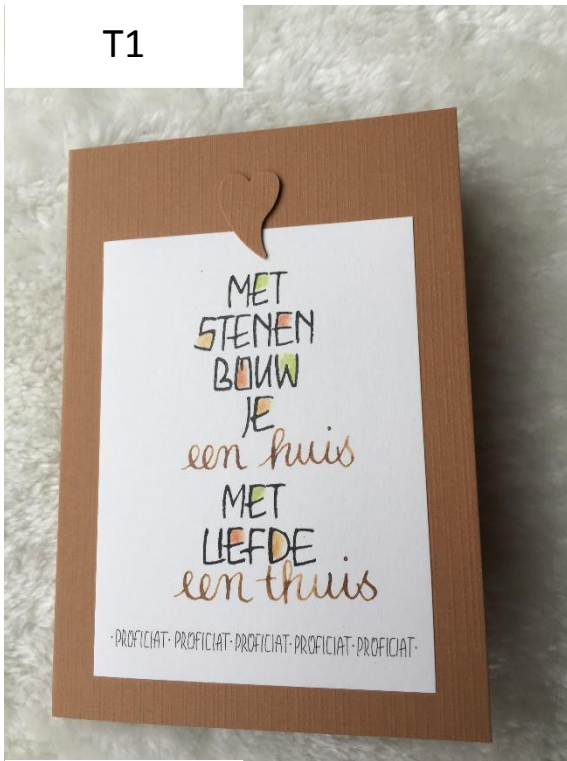 T1
MET
STENEN
BOUW
JE
een huis
MET
LIEFDE
een thuis
·PROFICIAT·PROFICIAT·PROFICIAT·PROFICIAT·PROFICIAT·